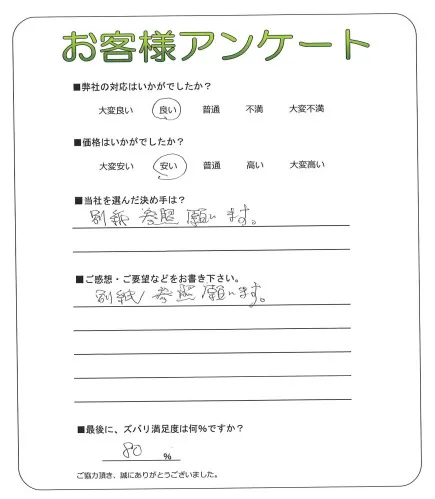 お客様アンケート
■弊社の対応はいかがでしたか？
大変良い 良い 普通 不満 大変不満
■価格はいかがでしたか？
大変安い 安い 普通 高い 大変高い
■当社を選んだ決め手は？
別紙 参照 願います。
■ご感想・ご要望などをお書き下さい。
別紙 参照 願います。
■最後に、ズバリ満足度は何%ですか？
80 %
ご協力頂き、誠にありがとうございました。